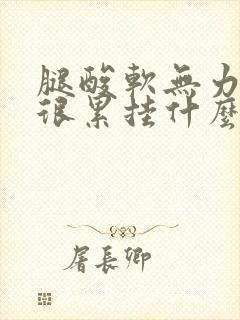 腿酸軟無力
很累挂什麼
屠長卿